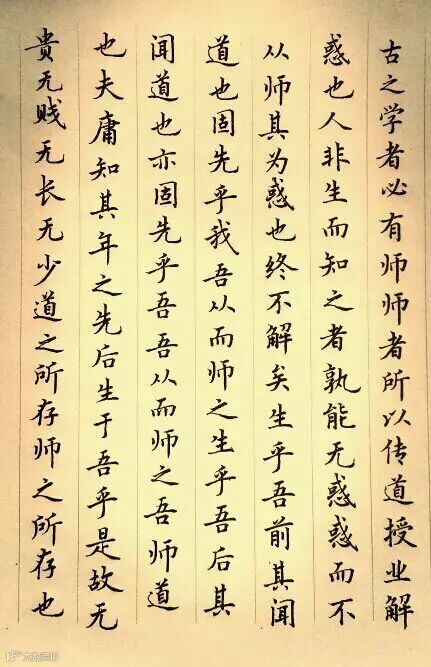 古之学者必有师师者所以传道授业解
惑也人非生而知之者孰能无惑惑而不
从师其为惑也终不解矣生乎吾前其闻
道也固先乎我吾从而师之生乎吾后其
闻道也亦固先乎吾吾从而师之吾师道
也夫庸知其年之先后生于吾乎是故无
贵无贱无长无少道之所存师之所存也